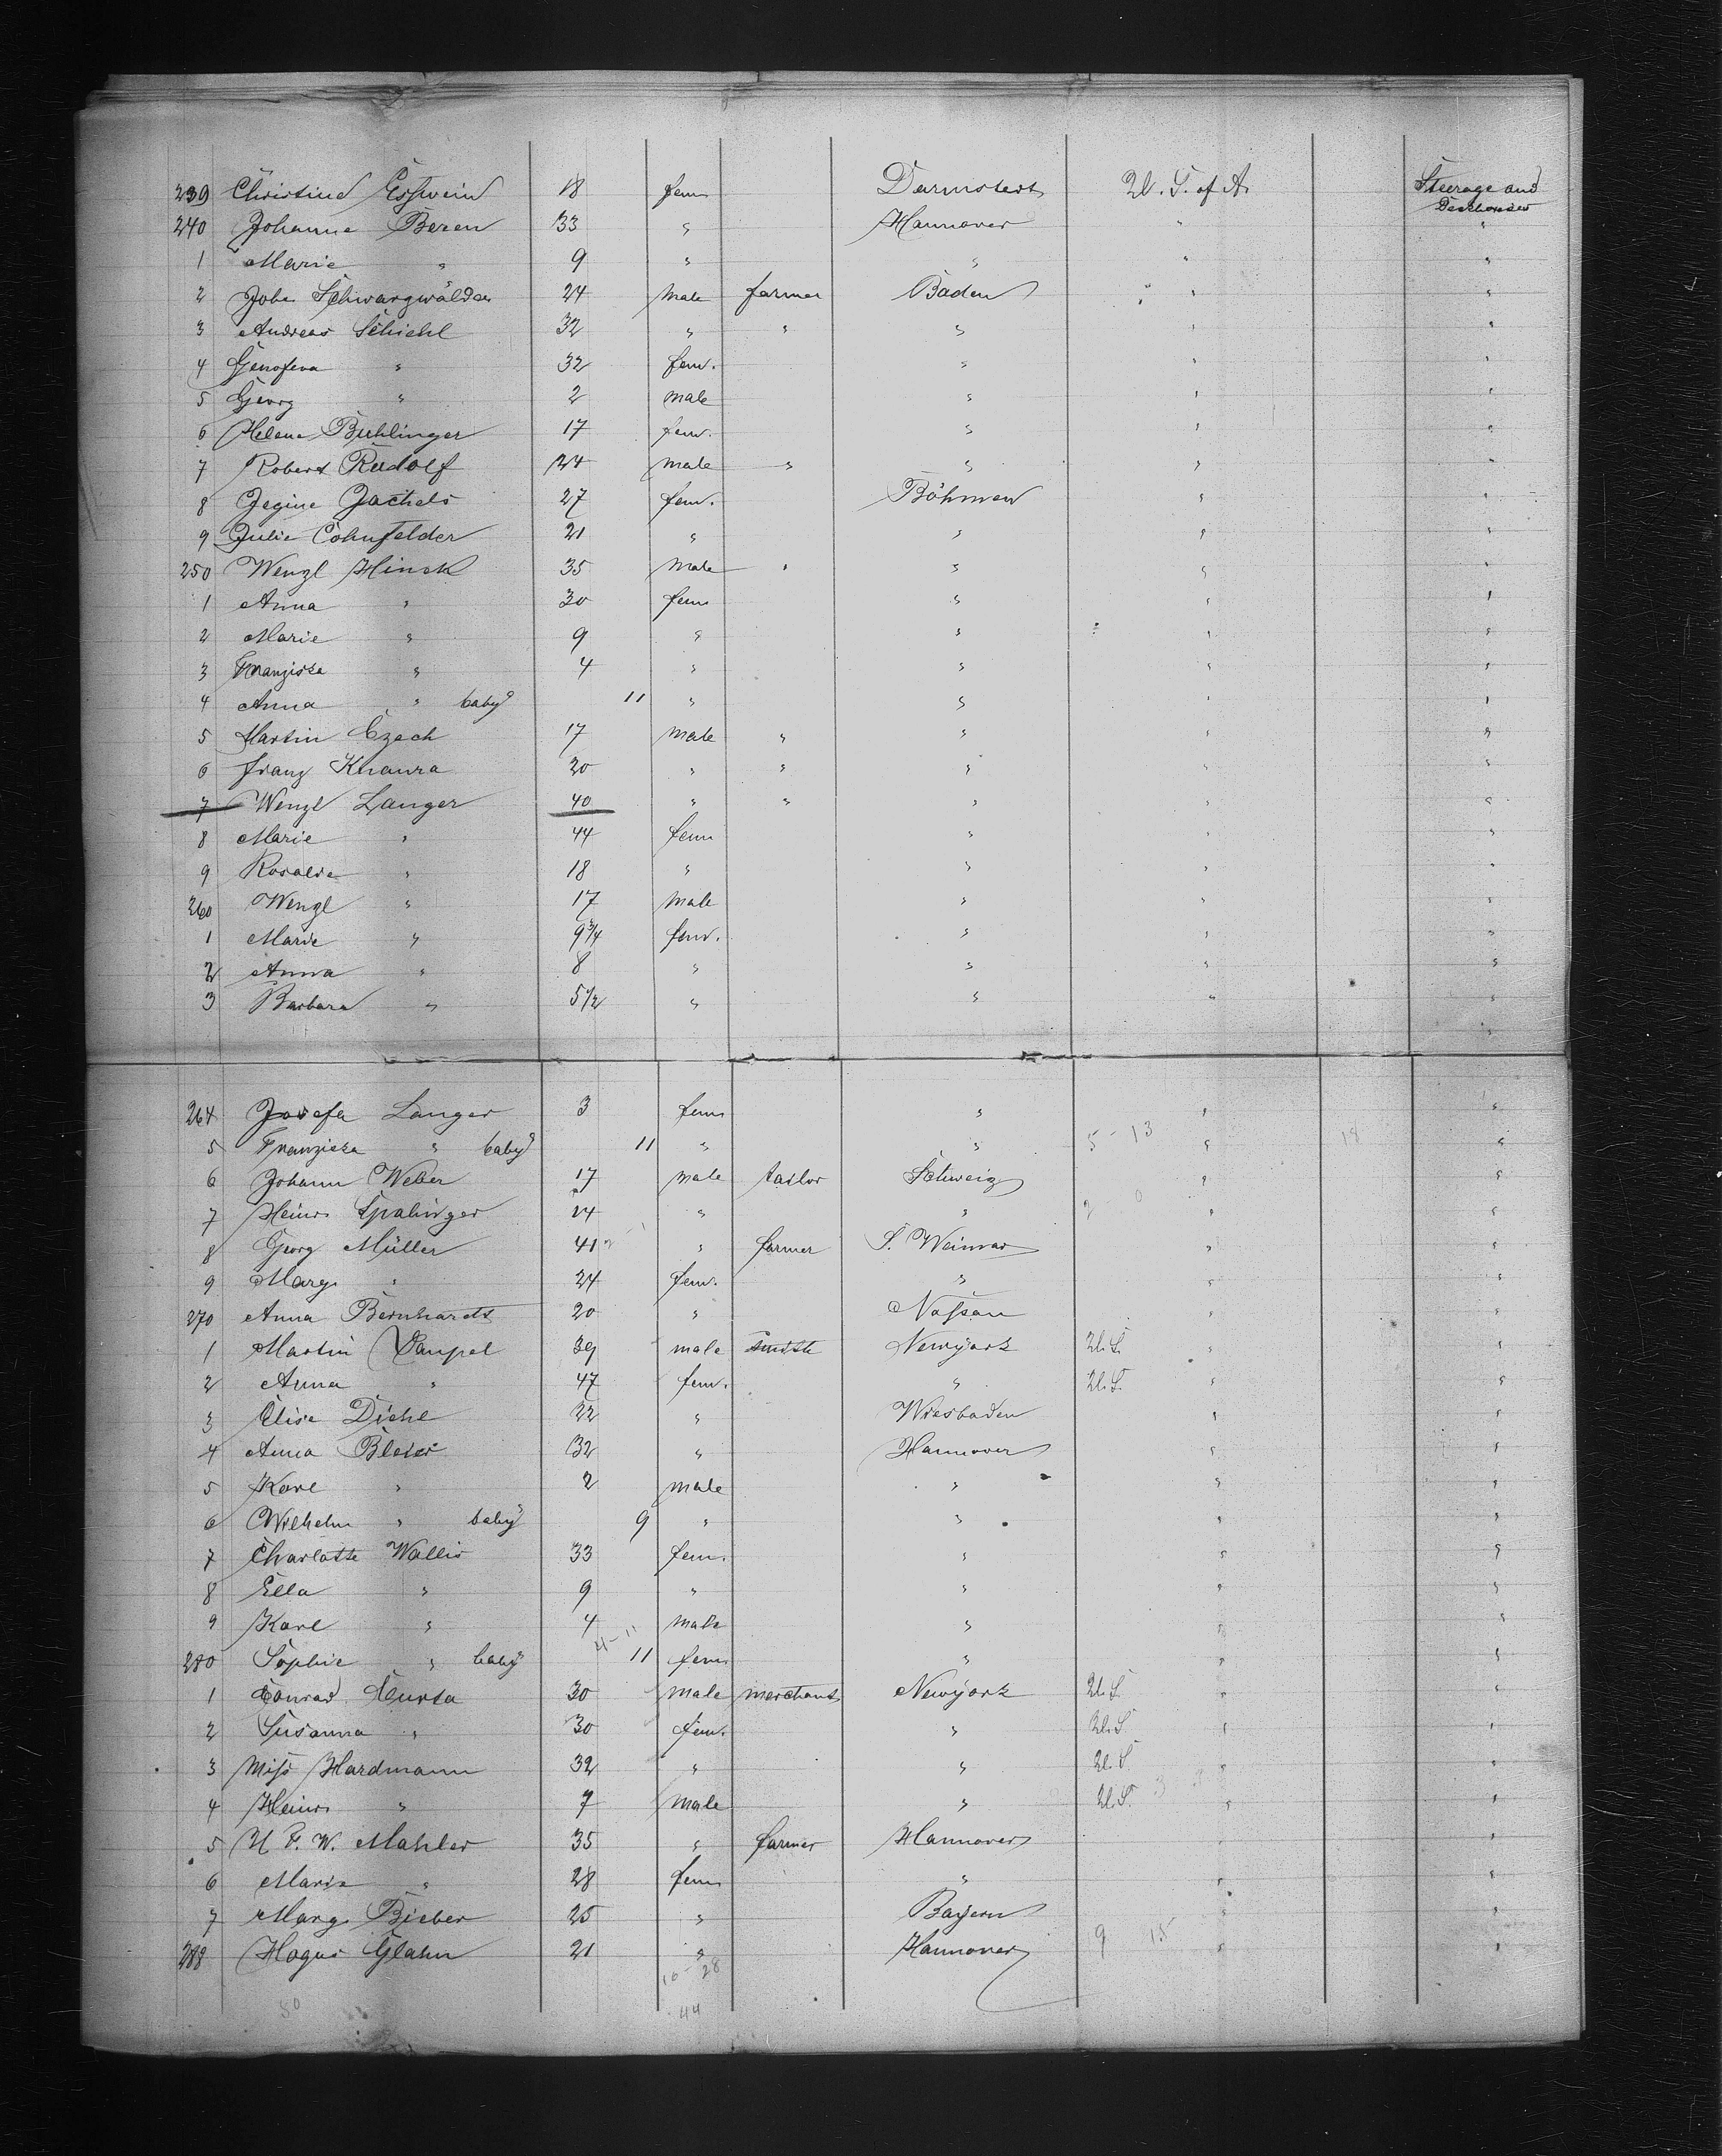 239 Christine Esswein 18 fem Darmstadt U. S. of A. Steerage and
Deckhouses
240 Johanne Beren 33 " Hannover " "
1 Marie " 9 " " " "
2 Johs Schwarzwälder 24 male farmer Baden " "
3 Andreas Schiehl 32 " " " " "
4 Genofeva " 32 fem. " " "
5 Georg " 2 male " " "
6 Helene Buhlinger 17 fem. " " "
7 Robert Rudolf 24 male " " " "
8 Jegine Jachels 27 fem. Böhmen " "
9 Julie Cohnfelder 21 " " " "
250 Wenzl Hinek 35 male " " " "
1 Anna " 30 fem " " "
2 Marie " 9 " " " "
3 Franziska " 4 " " " "
4 Anna " baby 11 " " " "
5 Martin Czech 17 male " " " "
6 Franz Knaura 20 " " " " "
7 Wenzl Langer 40 " " " " "
8 Marie " 44 fem " " "
9 Rosalie " 18 " " " "
260 Wenzl " 17 male " " "
1 Marie " 9 3/4 fem. " " "
2 Anna " 8 " " " "
3 Barbara " 5 1/2 " " " "
"
264 Josefa Langer 3 fem " " "
5 Franziska " baby 11 " " 5-13 " 18 "
6 Johann Weber 17 male tailor Schweiz " "
7 Heinr. Spalinger 24 " " 2 - 0 " "
8 Georg Müller 41 " farmer S. Weimar " "
9 Marg. " 24 fem. " " "
270 Anna Bernhardt 20 " Nassau " "
1 Martin Vaupel 39 male smith Newyork U. S. " "
2 Anna " 47 fem. " U. S. " "
3 Elise Diehl 22 " Wiesbaden " "
4 Anna Bleier 32 " Hannover " "
5 Karl " 2 male " " "
6 Wilhelm " baby 9 " " " "
7 Charlotte Wallis 33 fem. " " "
8 Ella " 9 " " " "
9 Karl " 4 male " " "
4-11
280 Sophie " baby 11 fem. " " "
1 Conrad 30 male merchant Newyork U. S. " "
2 Susanna " 30 fem. " U. S. " "
3 Miss Hardmann 32 " " U. S. " "
4 Heinr. " 7 male " U. S. 3 " "
5 H. F. W. Mahler 35 " farmer Hannover " "
6 Marie " 28 fem " " "
7 Marg. Bieber 25 " Bayern " "
288 Glahn 21 " Hannover 9 15 " "
10-28
50 44